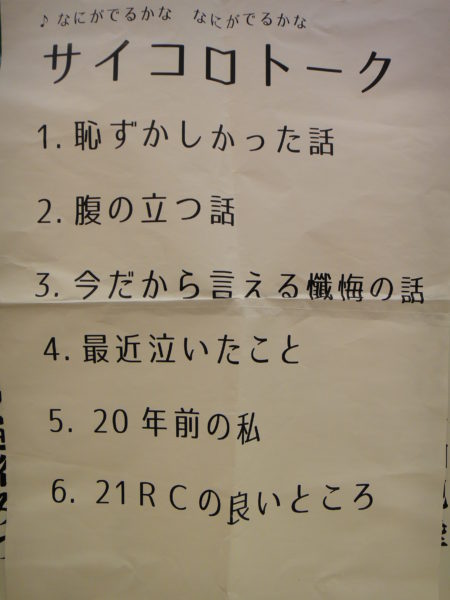 ♪なにがでるかな なにがでるかな
サイコロトーク
1. 恥ずかしかった話
2. 腹の立つ話
3. 今だから言える懺悔の話
4. 最近泣いたこと
5. 20年前の私
6. 21RCの良いところ